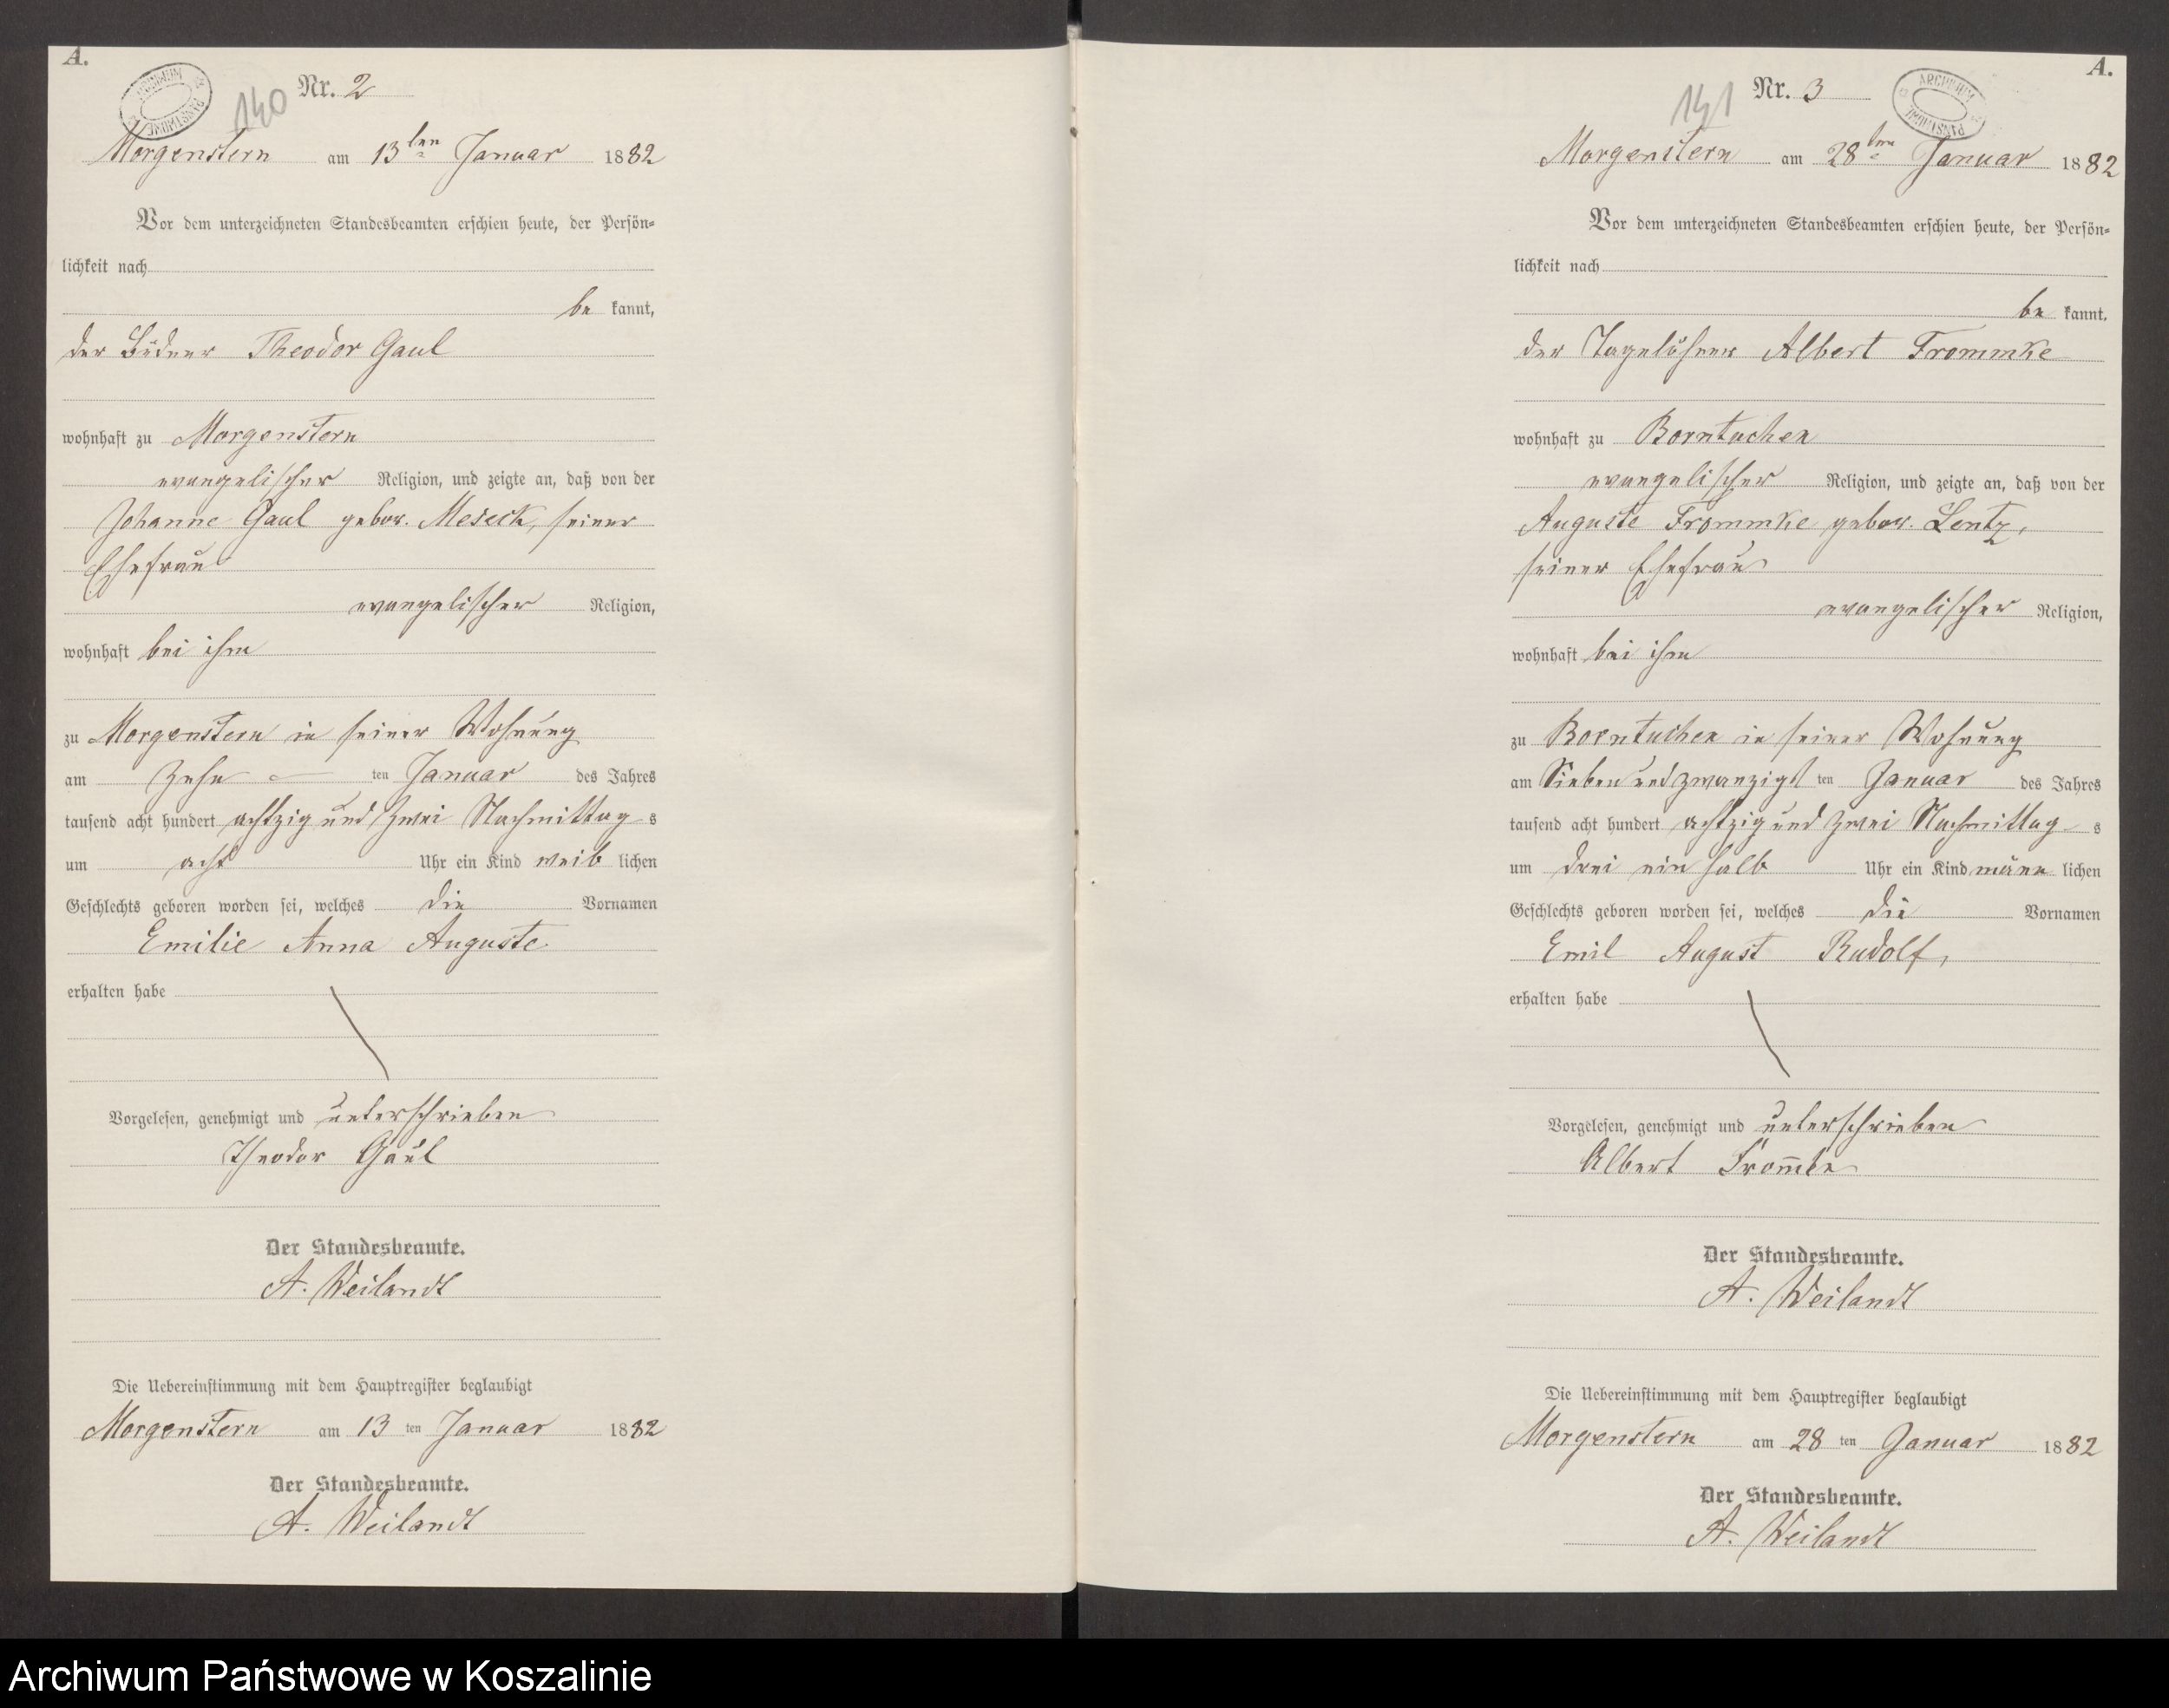 A.
ARCHIWUM PAŃSTWOWE
140
Nr. 2
Morgenstern am 13ten Januar 1882
Vor dem unterzeichneten Standesbeamten erschien heute, der Persön=
lichkeit nach
be kannt,
der Büdner Theodor Gaul
wohnhaft zu Morgenstern
evangelischer Religion, und zeigte an, daß von der
Johanne Gaul gebor. Meseck, seiner
Ehefrau
evangelischer Religion,
wohnhaft bei ihm
zu Morgenstern in seiner Wohnung
am Zehn ten Januar des Jahres
tausend acht hundert achtzig und zwei Nachmittag s
um acht Uhr ein Kind weib lichen
Geschlechts geboren worden sei, welches die Vornamen
Emilie Anna Auguste
erhalten habe
Vorgelesen, genehmigt und unterschrieben
Theodor Gaul
Der Standesbeamte.
A. Weilandt
Die Uebereinstimmung mit dem Hauptregister beglaubigt
Morgenstern am 13 ten Januar 1882
Der Standesbeamte.
A. Weilandt
A.
ARCHIWUM PAŃSTWOWE
141
Nr. 3
Morgenstern am 28ten Januar 1882
Vor dem unterzeichneten Standesbeamten erschien heute, der Persön=
lichkeit nach
be kannt,
der Tagelöhner Albert Frommke
wohnhaft zu Borntuchen
evangelischer Religion, und zeigte an, daß von der
Auguste Frommke gebor. Lentz,
seiner Ehefrau
evangelischer Religion,
wohnhaft bei ihm
zu Borntuchen in seiner Wohnung
am Sieben und zwanzigst ten Januar des Jahres
tausend acht hundert achtzig und zwei Nachmittag s
um drei ein halb Uhr ein Kind männ lichen
Geschlechts geboren worden sei, welches die Vornamen
Emil August Rudolf,
erhalten habe
Vorgelesen, genehmigt und unterschrieben
Albert From̅ke
Der Standesbeamte.
A. Weilandt
Die Uebereinstimmung mit dem Hauptregister beglaubigt
Morgenstern am 28 ten Januar 1882
Der Standesbeamte.
A. Weilandt
Archiwum Państwowe w Koszalinie